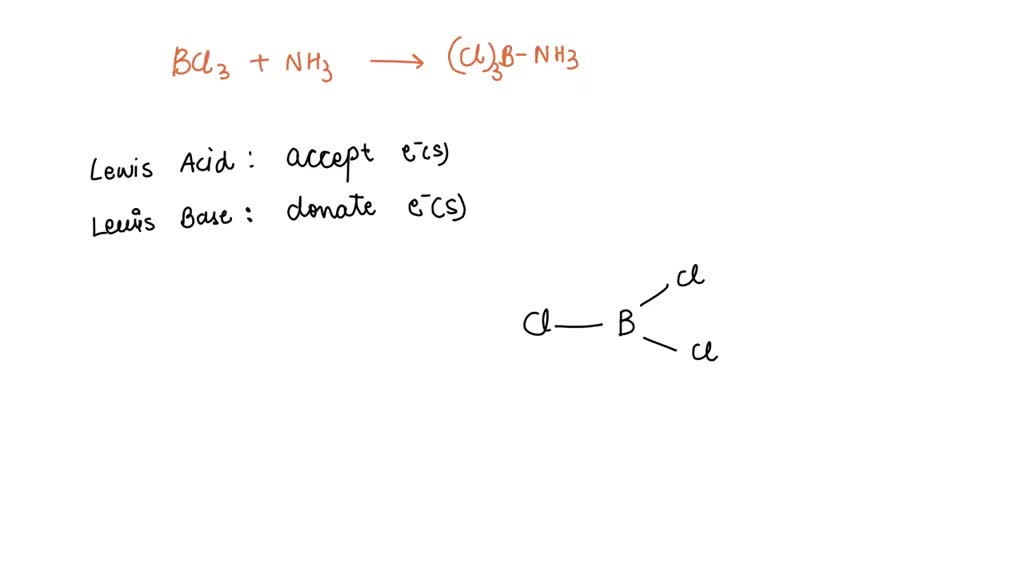 BCl3 + NH3 → (Cl)3B-NH3
Lewis Acid : accept e-(s)
Lewis Base : donate e-(s)
Cl
Cl — B
Cl